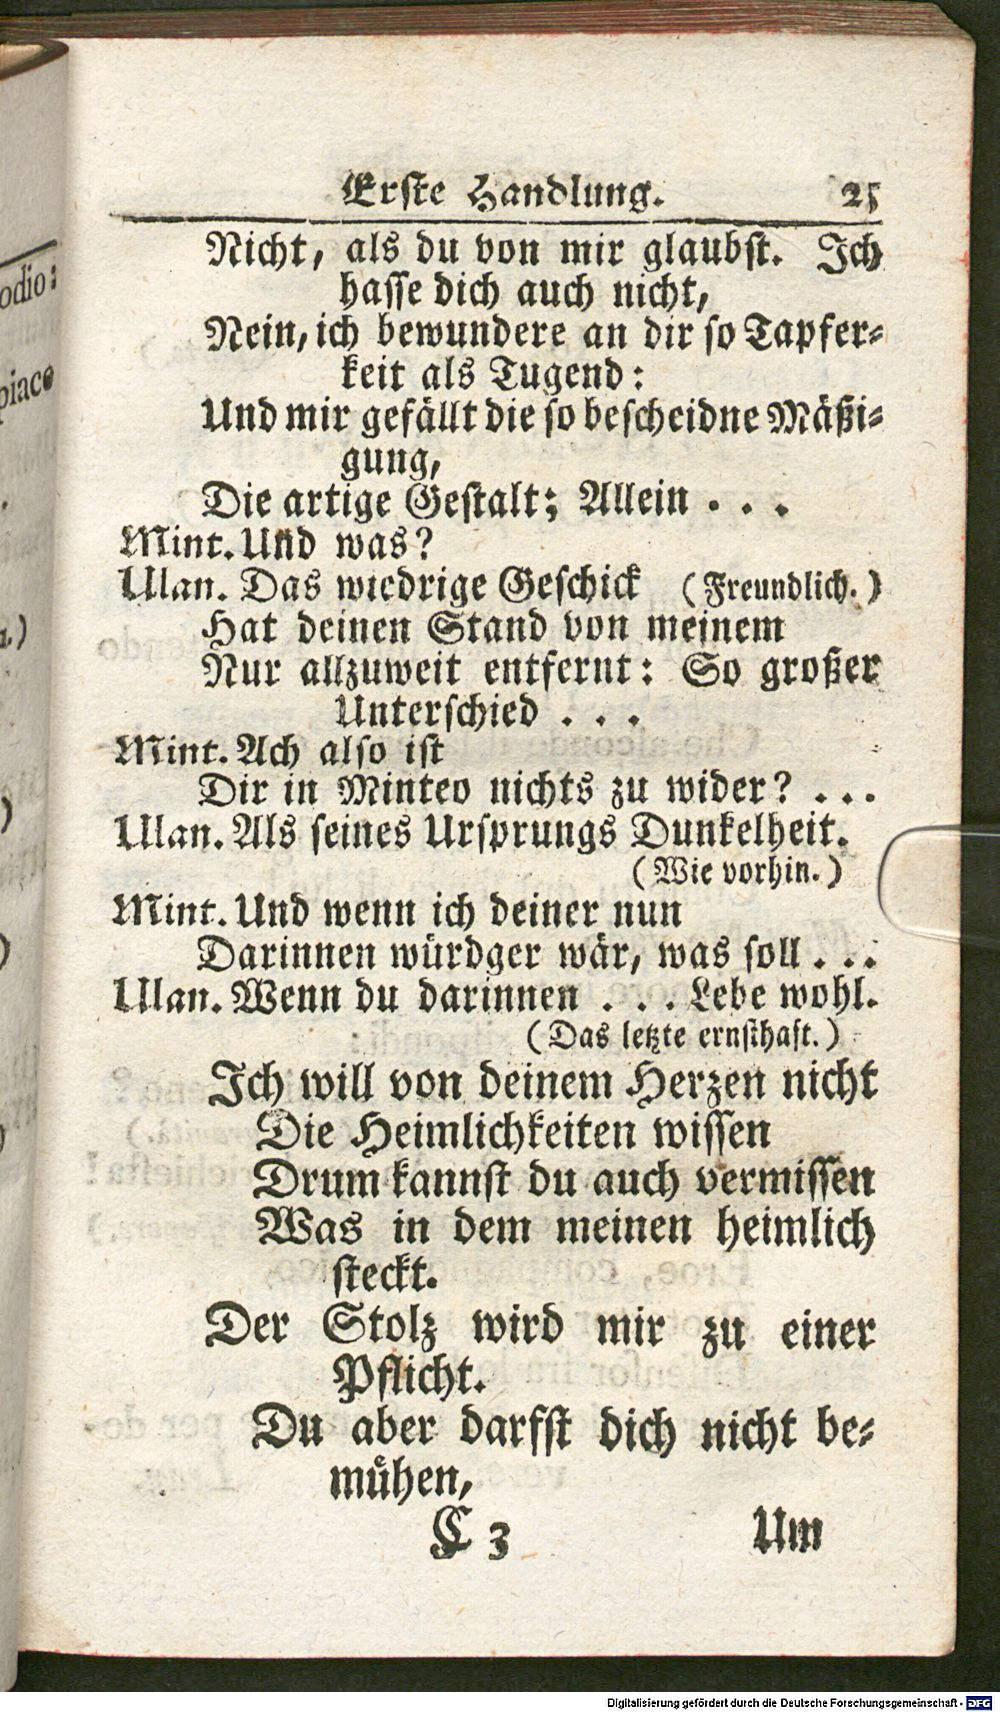 Erste Handlung. 25
Nicht, als du von mir glaubst. Ich
hasse dich auch nicht,
Nein, ich bewundere an dir so Tapfer-
keit als Tugend:
Und mir gefällt die so bescheidne Mäßi-
gung,
Die artige Gestalt; Allein . . .
Mint. Und was?
Ulan. Das wiedrige Geschick (Freundlich.)
Hat deinen Stand von meinem
Nur allzuweit entfernt: So großer
Unterschied . . .
Mint. Ach also ist
Dir in Minteo nichts zu wider? . . .
Ulan. Als seines Ursprungs Dunkelheit.
(Wie vorhin.)
Mint. Und wenn ich deiner nun
Darinnen würdger wär, was soll . . .
Ulan. Wenn du darinnen . . . Lebe wohl.
(Das letzte ernsthaft.)
Ich will von deinem Herzen nicht
Die Heimlichkeiten wissen
Drum kannst du auch vermissen
Was in dem meinen heimlich
steckt.
Der Stolz wird mir zu einer
Pflicht.
Du aber darfst dich nicht be-
mühen,
C 3 Um
odio:
piaco
Digitalisierung gefördert durch die Deutsche Forschungsgemeinschaft - DFG